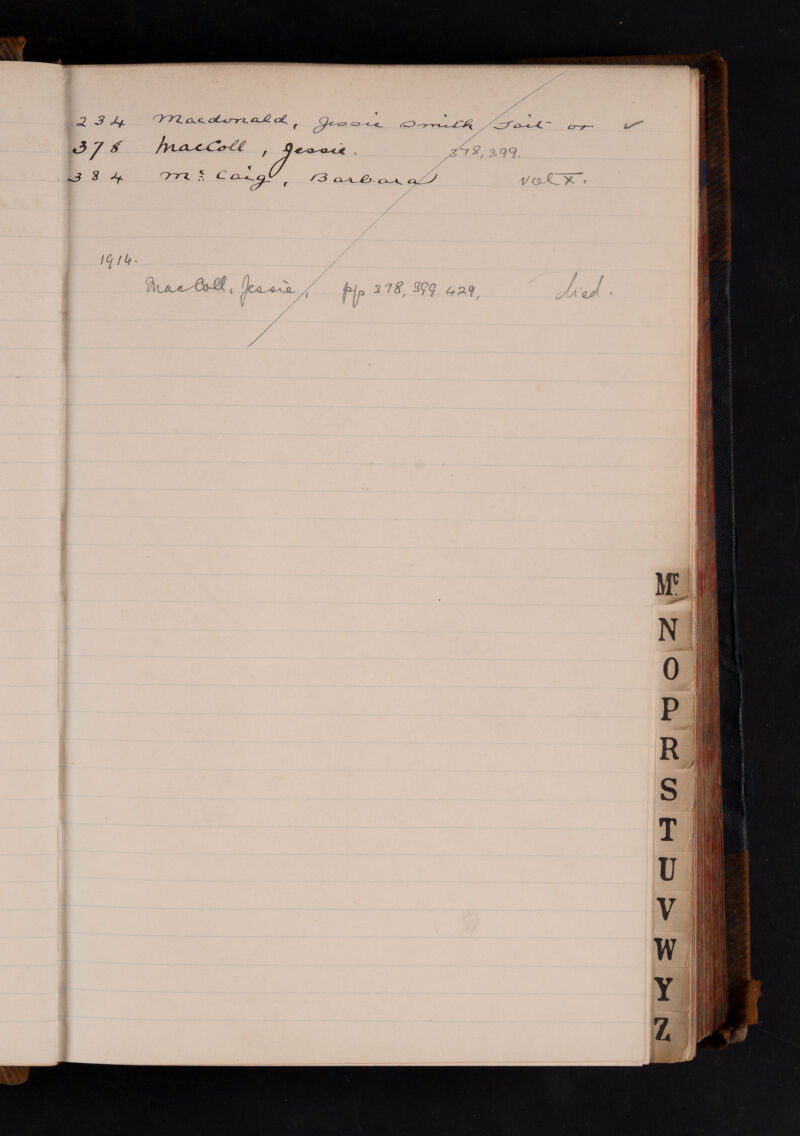 234 Macdonald, Jessie Smith Tait or ✓
378 MacColl, Jessie. 378, 399.
384 Mc Caig, Barbara Vol X.
1914.
MacColl, Jessie, pp 378, 399. 429, died.
Mc.
N
O
P
R
S
T
U
V
W
Y
Z